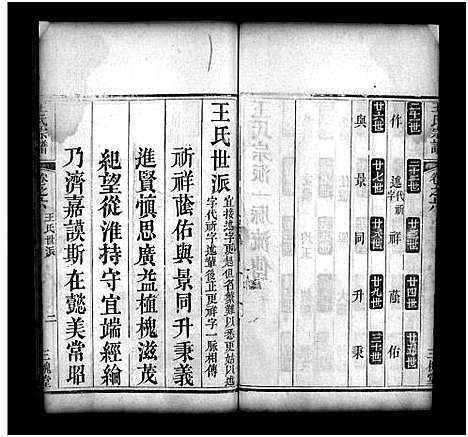 王氏宗譜
卷之六
二十一世 二十二世 二十三世 二十四世 二十五世
作 述代祈字 祥 蔭 佑
廿六世 廿七世 廿八世 廿九世 三十世
與 景 同 升 秉
三槐堂
王氏宗派一脈流傳
王氏世派
宜接述字更是但省繁難以悉更姑以述
字代祈字述輩後正更祥字一脈相傳
祈祥蔭佑與景同升秉義
進賢慎思廣益植槐滋茂
紀望從淮持守宜端經綸
乃濟嘉謨斯在懿美常昭
王氏宗譜
卷之六
王氏世派
二
三槐堂